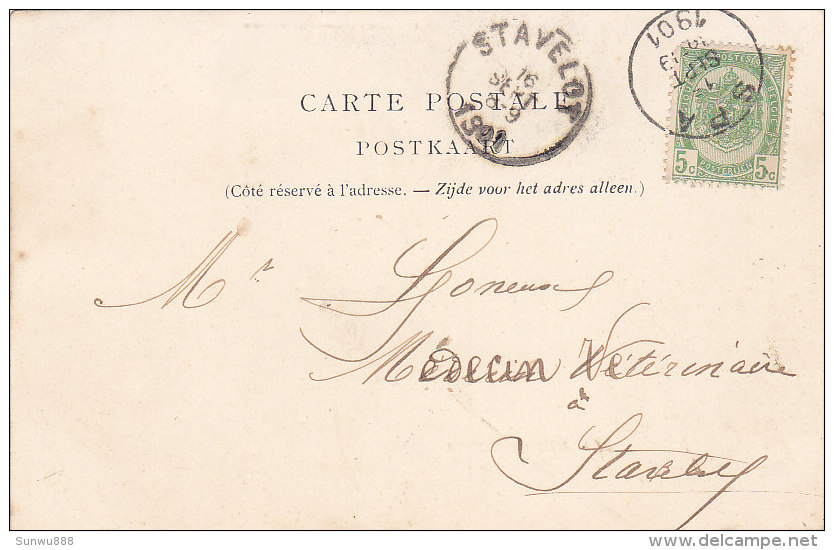 CARTE POSTALE
POSTKAART
(Côté réservé à l'adresse. — Zijde voor het adres alleen.)
STAVELOT
16
SEPT
9
1901
SPA
SEPT
1901
POSTES
BELGIE
POSTERIJEN
5c 5c
Mr
Médecin Vétérinaire
à
Stavelot
Sunwu888
delcampe.net